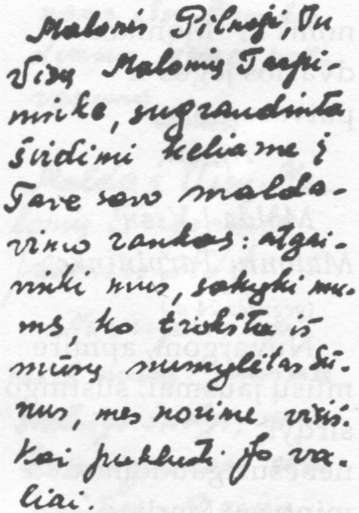 Malonės Pilnoji, Tu
Visų Malonių Tarpi-
ninke, sugraudinta
širdimi keliame į
Tave savo maldo-
vimo rankas: atgai-
vinki mus, sakyki mu-
ms, ko trokšta iš
mūsų numylėtas Sū-
nus, mes norime visiš-
kai paklusti Jo va-
liai.